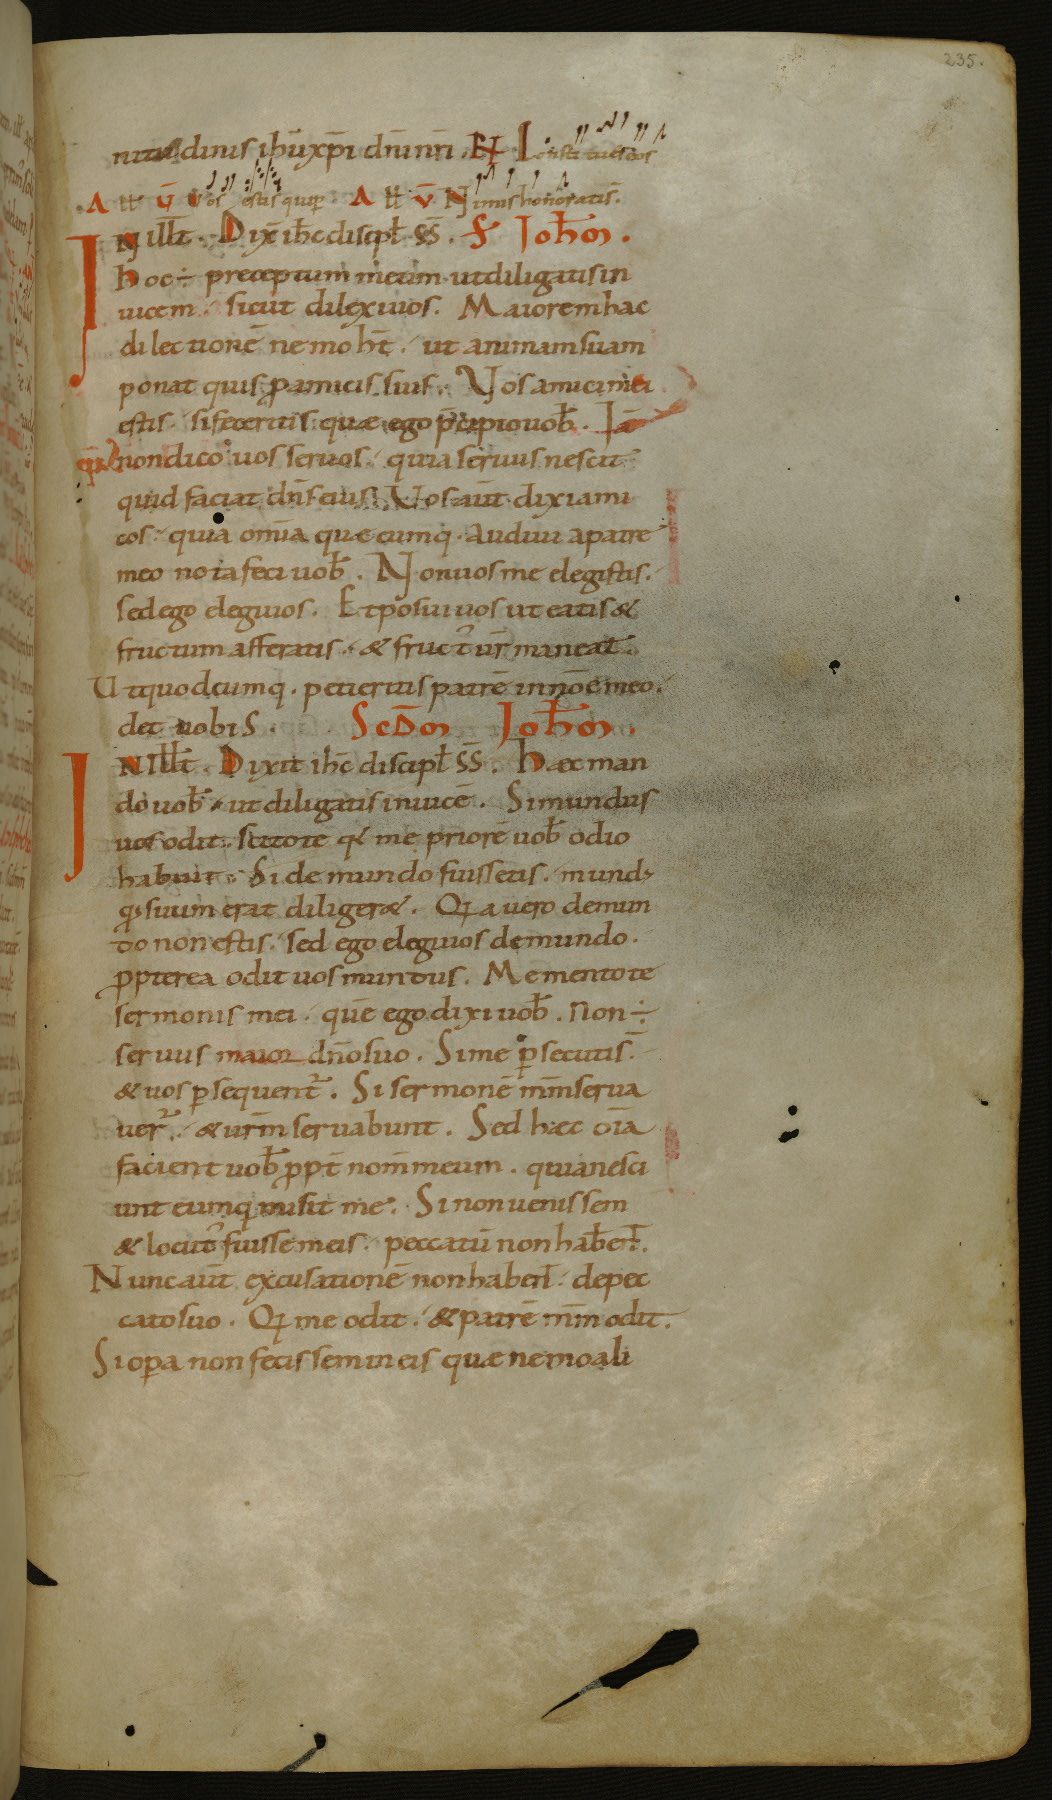 235.
nitudinis ihu xpi dni nri. R Constitues eos
A ll V Vos estis qui per A ll V Nimis honorati s̄.
IN ill t. Dix ihc discipl ss. S Iohm.
hoc ÷ preceptum meum ut diligatis in
uicem. sicut dilexi uos. Maiorem hac
dilectionē nemo ht. ut animam suam
ponat quis p amicis suis. Vos amici mei
estis. si feceritis quae ego p̄cipio uob. Iā
non dico uos seruos. quia seruus nescit
quid faciat dns eius. Vos aut dixi ami
cos. quia omīa quaecumq. audiui a patre
meo nota feci uob. Non uos me elegistis.
sed ego elegi uos. Et posui uos ut eatis &
fructum afferatis. & fruct ur maneat.
Ut quodcumq. petieritis patrē in nōe meo.
det uobis. Scdm Iohm.
IN ill t. Dixit ihc discipl ss. Haec man
do uob. ut diligatis inuicē. Si mundus
uos odit. scitote q me priorē uob odio
habuit. Si de mundo fuissetis. mund
q suum erat diliger&. Q a uero de mun
do non estis. sed ego elegi uos de mundo.
ppterea odit uos mundus. Mementote
sermonis mei. quē ego dixi uob. Non ÷
seruus maior dno suo. Si me p secuti s̄.
& uos p sequent. Si sermonē mm serua
uer. & urm seruabunt. Sed haec oīa
facient uob ppt nom meum. quia nesci
unt eum q misit me. Si non uenissem
& locut fuissem eis. peccatū non haber.
Nunc aut excusationē non habent. de pec
cato suo. Q me odit. & patrē mm odit.
Si opa non fecissem in eis quae nemo ali